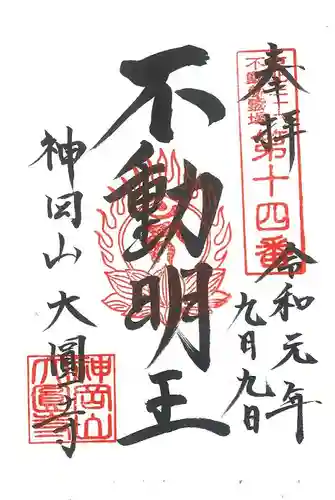 奉拝
第十四番
令和元年
九月九日
不動明王
神岡山 大圓寺
神岡山
大圓寺